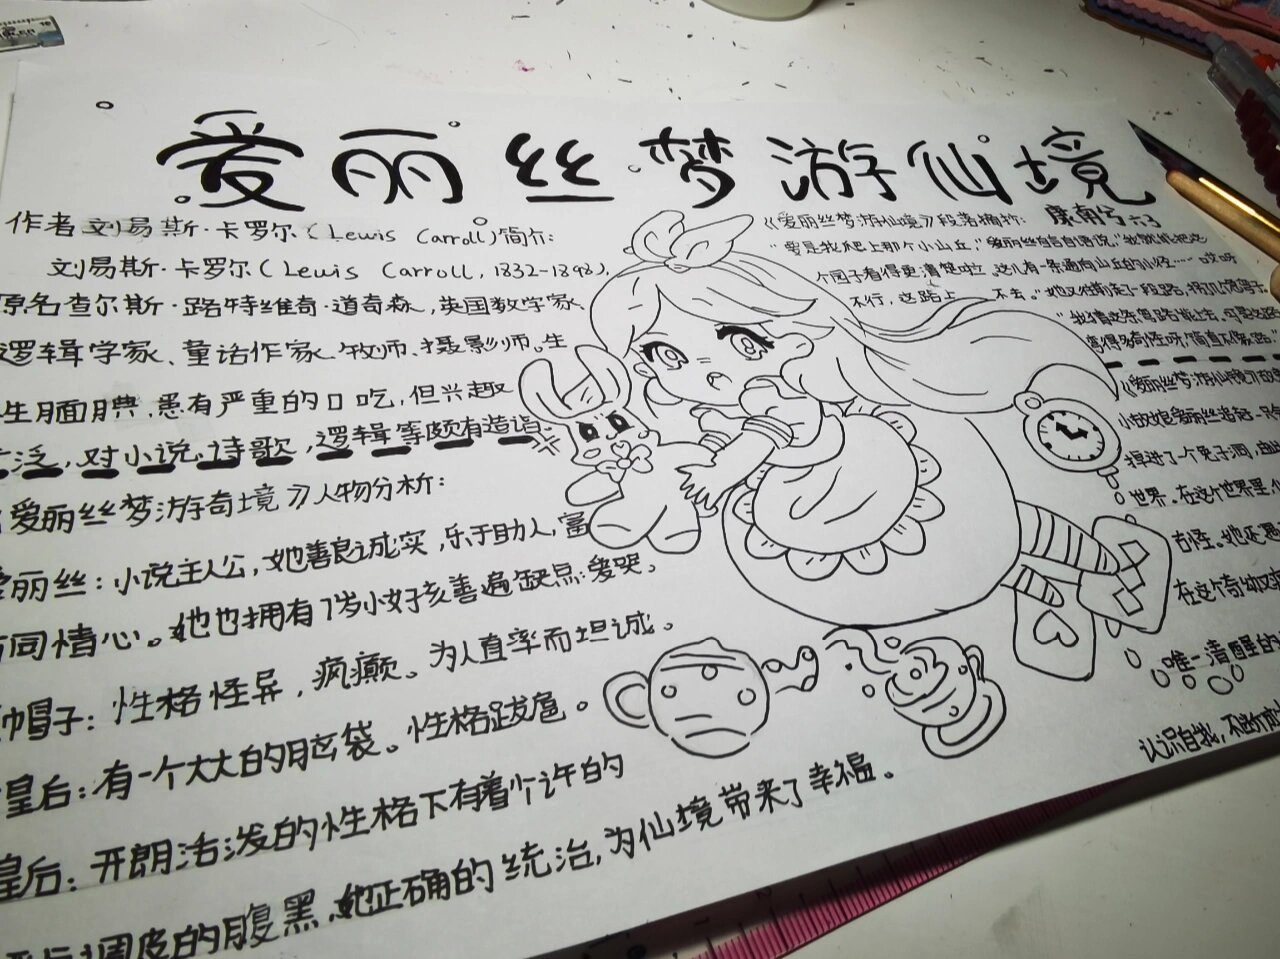 爱丽丝梦游仙境
作者刘易斯·卡罗尔(Lewis Carroll)简介:
刘易斯·卡罗尔(Lewis Carroll, 1832-1898),
原名查尔斯·路特维奇·道奇森,英国数学家、
逻辑学家、童话作家、牧师、摄影师。生
生腼腆,患有严重的口吃,但兴趣
广泛,对小说、诗歌,逻辑等颇有造诣。
《爱丽丝梦游奇境》人物分析:
爱丽丝:小说主人公,她善良诚实,乐于助人,富
有同情心。她也拥有7岁小女孩普遍缺点:爱哭。
帽子:性格怪异,疯癫。为人直率而坦诚。
皇后:有一个大大的脑袋。性格跋扈。
皇后:开朗活泼的性格下有着少许的
调皮的腹黑,她正确的统治,为仙境带来了幸福。
《爱丽丝梦游仙境》段落摘抄: 六3
"要是我爬上那个小山丘,"爱丽丝自言自语说,"我就能把这
个园子看得更清楚啦。这儿有一条通向山丘的小径……哎呀
不行,这路上 不去。"她又往前走了一段路,拐了几个弯子,
《爱丽丝梦游仙境》故事
小姑娘爱丽丝追着一只
掉进了一个兔子洞,由此
世界。在这个世界里,
古怪。她还遇
在这个奇幻
唯一清醒的
认识自我,不断